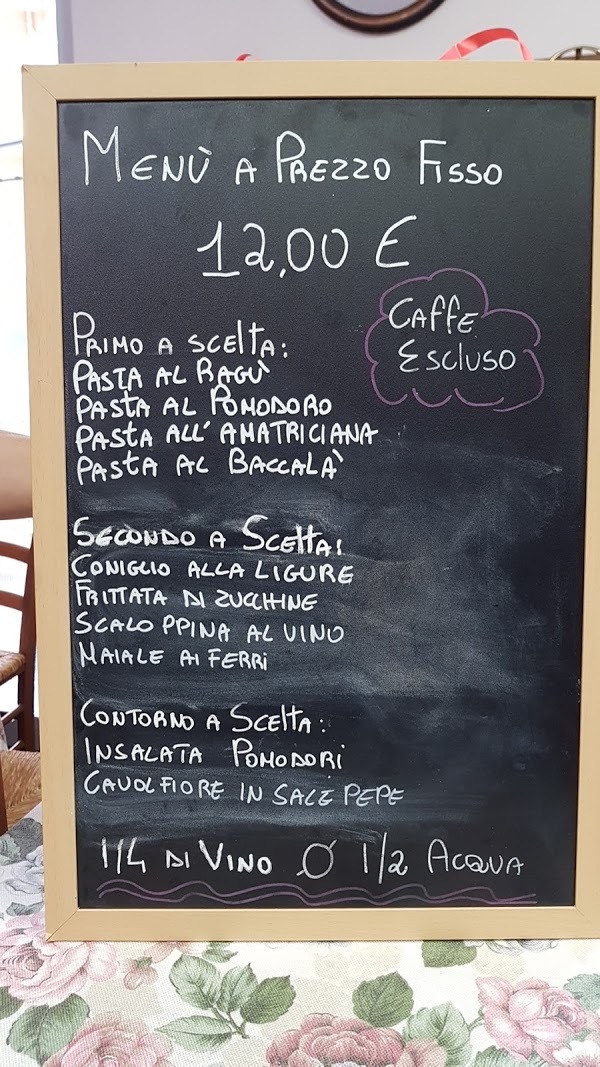 MENÙ A PREZZO FISSO
12,00 €
CAFFE
ESCLUSO
PRIMO A SCELTA:
PASTA AL RAGÙ
PASTA AL POMODORO
PASTA ALL'AMATRICIANA
PASTA AL BACCALÀ
SECONDO A SCELTA:
CONIGLIO ALLA LIGURE
FRITTATA DI ZUCCHINE
SCALOPPINA AL VINO
MAIALE AI FERRI
CONTORNO A SCELTA:
INSALATA POMODORI
CAVOLFIORE IN SALE PEPE
1/4 DI VINO O 1/2 ACQUA